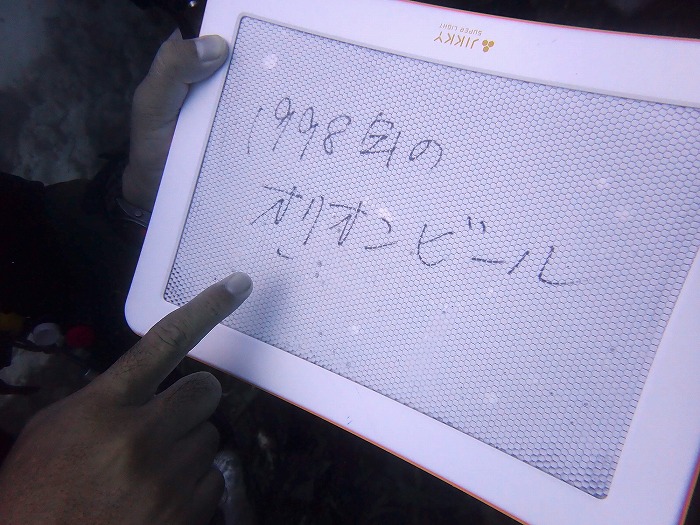 JIKKY
SUPER LIGHT
1998年の
オリオンビール